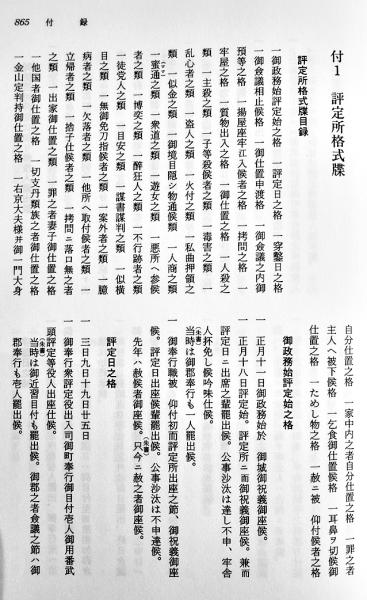 865　付　録
付1　評定所格式牒
評定所格式牒目録
一御政務始評定始之格　一評定日之格　一穿鑿日之格
一御僉議相止候格　一御仕置申渡格　一御僉議之内御
預等之格　一揚屋座牢江入候者之格　一拷問之格　一
牢屋之格　一質物出入之格　一御仕置之格　一人殺之
類　一主殺之類　一子等殺候者之類　一毒害之類　一
乱心者之類　一盗人之類　一火付之類　一私曲押領之
類　一似金之類　一御境目隠シ物通候類　一人商之類
一蜜通之類　一衆道之類　一遊女之類　一悪所へ参候
者之類　一博奕之類　一酔狂人之類　一不行跡者之類
一徒党人之類　一目安之類　一謀書謀判之類　一似横
目之類　一無御免刀指候者之類　一案外者之類　一臆
病者之類　一欠落者之類　一他所へ取付候者之類　一
立帰者之類　一捨子仕候者之類　一拷問ニ落ロ無之者
之類　一出家御仕置之類　一罪之者妻子御仕置之格
一他国者御仕置之格　一切支丹類族之者御仕置之格
一金山定判持御仕置之格　一右京大夫様并御一門大身
自分仕置之格　一家中内之者自分仕置之格　一罪之者
主人へ被下候格　一乞食御仕置候格　一耳鼻ヲ切候御
仕置之格　一ためし物之格　一赦ニ被　仰付候者之格
御政務始評定始之格
一正月十一日御政務始於　御城御祝儀御座候。
一正月十八日評定始。評定所ニ而御祝儀御座候。兼而
評定日ニ出席之輩罷出候。公事沙汰は達し不申、牢舎
人抔免し候吟味仕候。
(朱書)
当時は御郡奉行も一人罷出候。
一御奉行職被　仰付初而評定所出座之節、御祝儀御座
候。評定日出座候輩罷出候。公事沙汰は不申達候。
(朱書)
先年ハ赦候者御座候。只今ニ赦之者御座候。
評定日之格
一三日九日十九日廿五日
一御奉行衆評定役出入司御町奉行御目付壱人御用番武
頭評定等役人出座仕候。
(朱書)
当時は御近習目付も罷出候。御郡之者僉議之節ハ御
郡奉行も壱人罷出候。